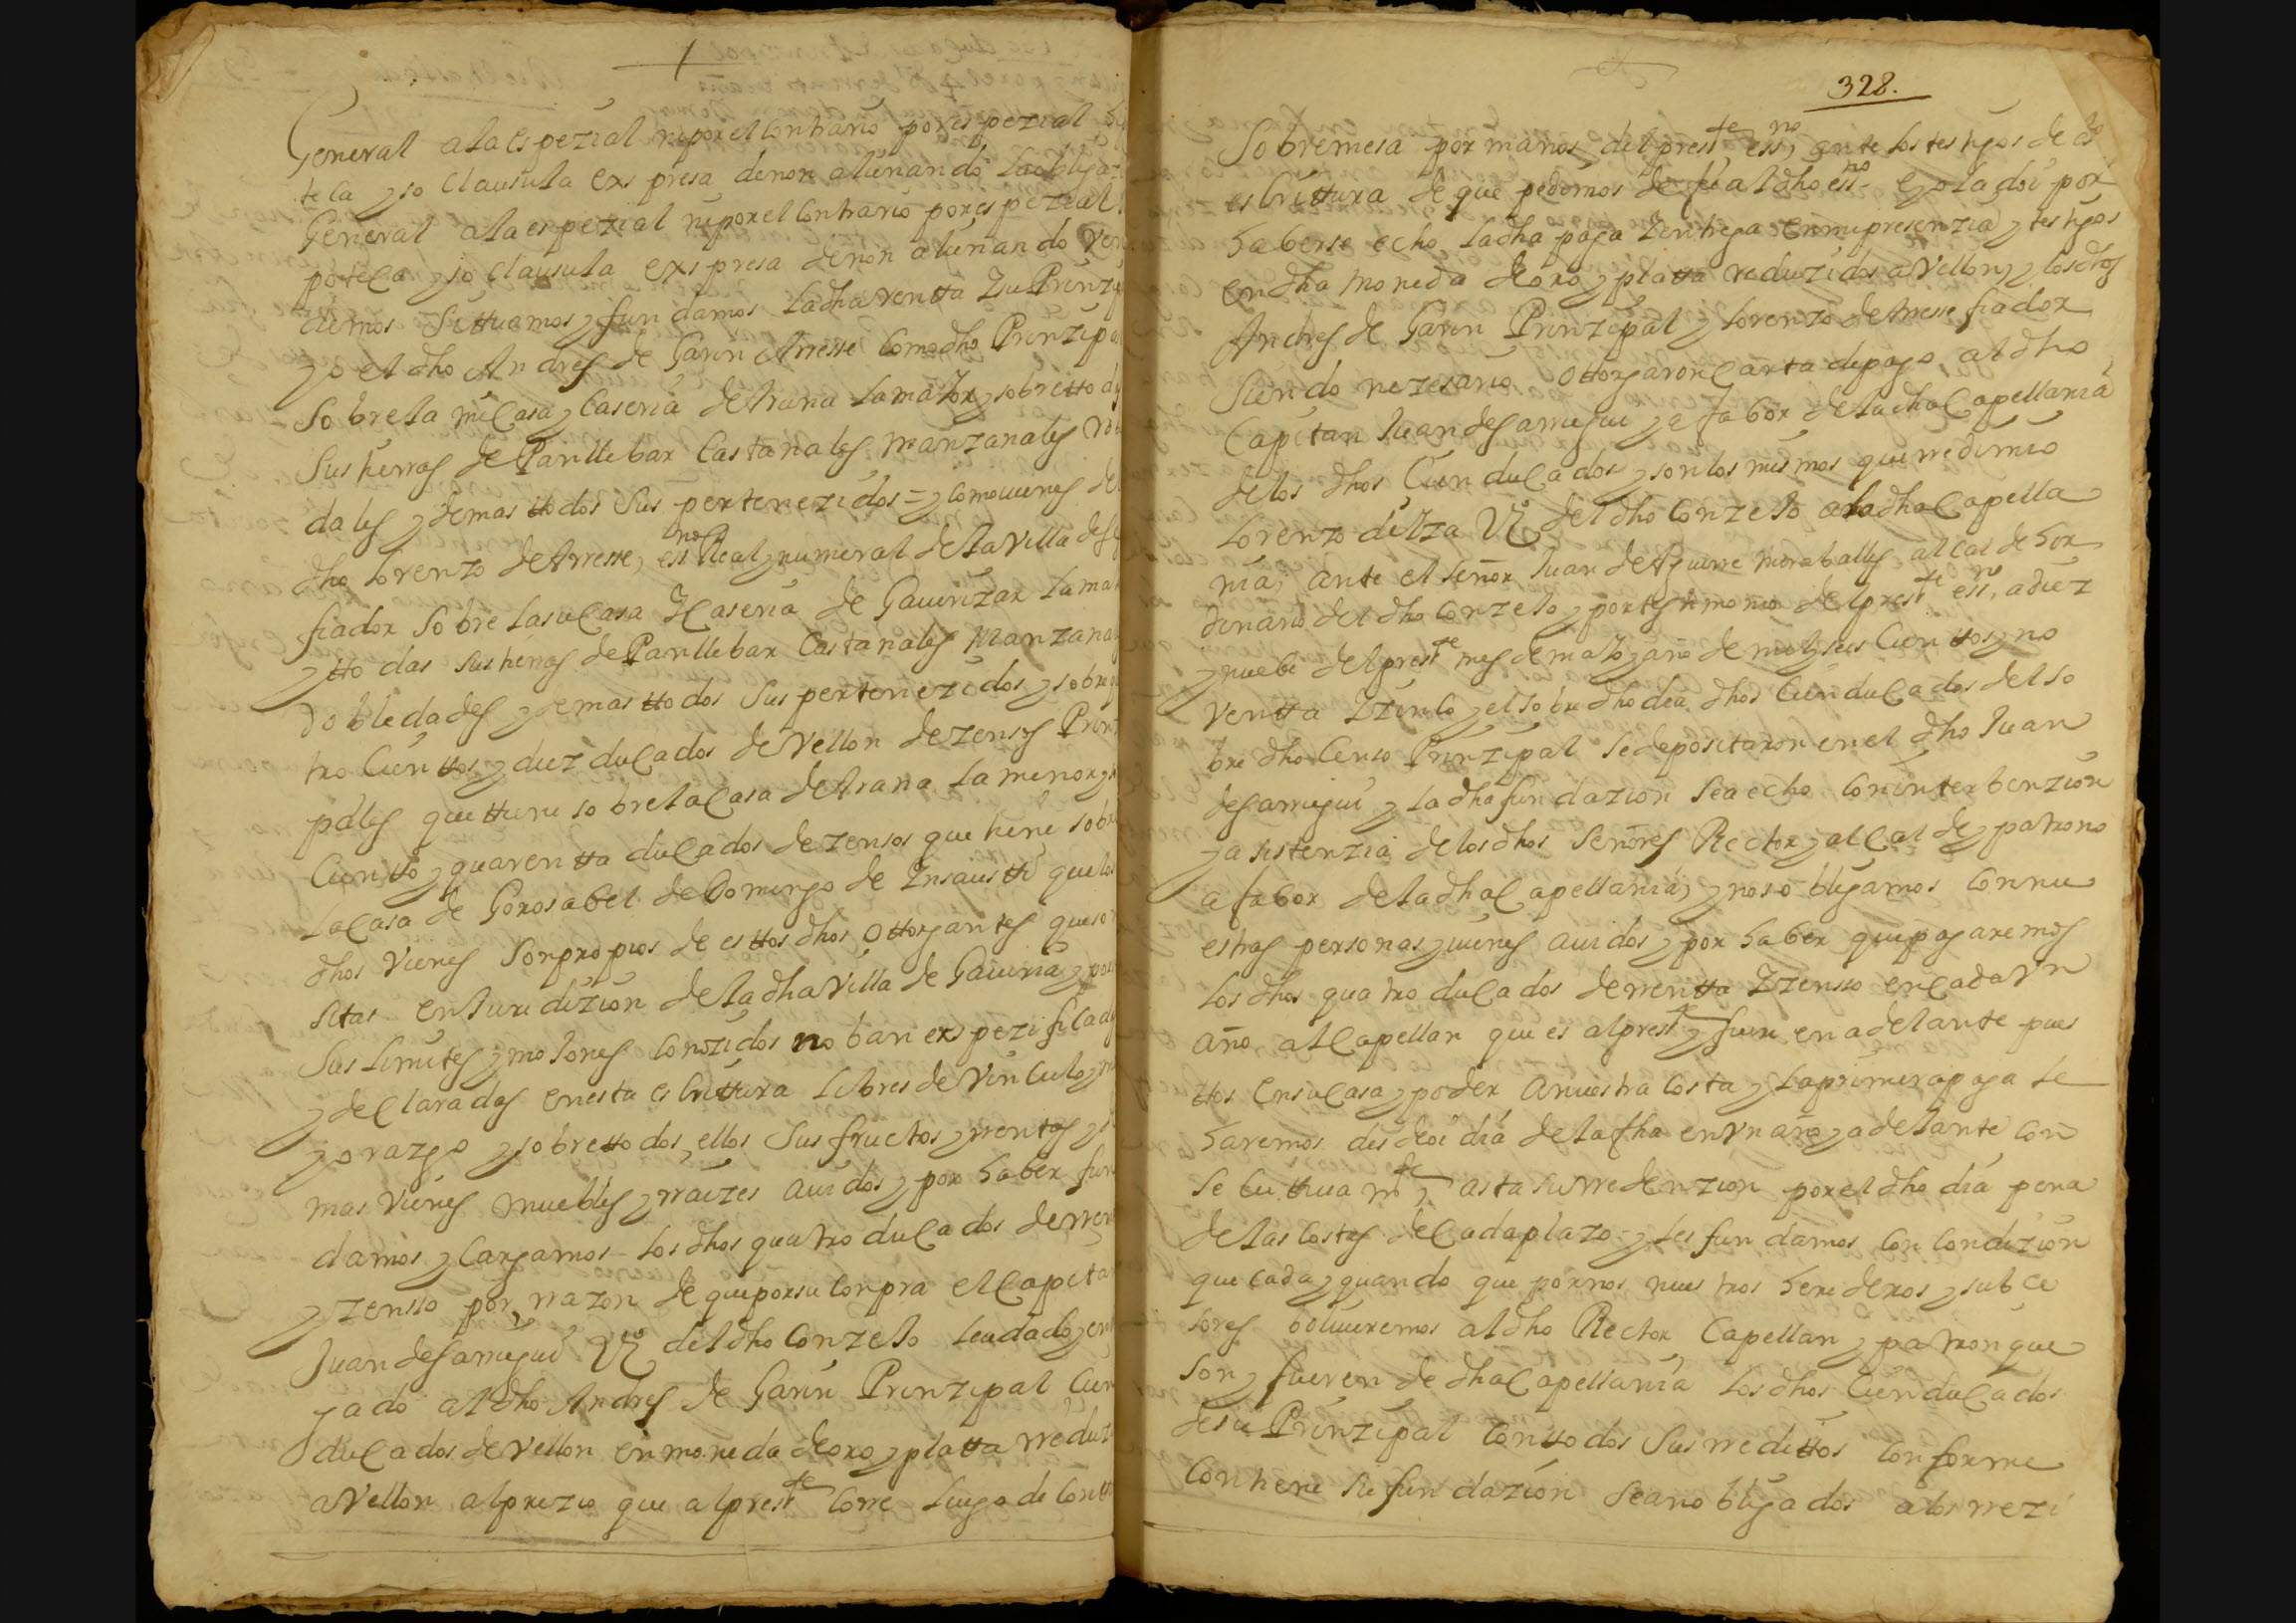 General a la espezial ni por el contrario por espezial hi
teca y so clausula expresa de non alienando la obligaz
General a la espezial ni por el contrario por espezial
poteca y so clausula expresa de non alienando Ven
demos Situamos y fundamos la dha rentta
yo el dho Andres de Garin Arresse como dho Prinzipal
Sobre la mi Casa y Caseria de Arana la maior y sobre tto
Sus tierras de Panllebar Castañales manzanales
dales y demas ttodos Sus pertenezidos = y como vienes de
dho Lorenzo de Arresse, essno Real y numeral de la villa de
fiador sobre la su Casa y Caseria de Gavirizar la ma
y ttodas sus tierras de Panllebar Castañales Manzana
Robledades y demas ttodos Sus pertenezidos y sobre
tro Cienttos y diez ducados de Vellon de zensos Prin
pales que ttiene sobre la Casa de Arana la menor y
Cientto y quarentta ducados de zensos que tiene sobre
la Casa de Gorosabel de Domingo de Insaustti que los
dhos Vienes son propios de esttos dhos Ottorgantes que son
sitas en Juridizion de la dha Villa de Gaviria y por
Sus limites y mojones conozidos no ban expezificad
y declarados en esta escrittura libres de Vinculo y
yorazgo y sobre ttodos ellos Sus fructos y rrentas y
mas Vienes muebles y rraizes avidos y por haber fun
damos y Cargamos los dhos quatro ducados de rren
y zensso por rrazon de que por su Conpra el Capitan
Juan de Sarregui Vº del dho Conzejo le a dado y en
gado al dho Andres de Garin Prinzipal Cien
ducados de Vellon en moneda de oro y platta rreduz
a Vellon al prezio que al presste Corre luego de Contt
328.
Sobremesa por manos del presste essno, ante los testigos de
escrittura de que pedimos de fe al dho essno - E yo la doi por
haberse echo la dha paga Y entrega en mi presenzia y testigos
en dha moneda de oro y platta reduzidos a Vellon y los dhos
Andres de Garin Prinzipal y Lorenzo de Arresse fiador
Siendo nezesario Ottorgaron Carta de pago, al dho
Capitan Juan de Sarregui y a fabor de la dha Capellania
de los dhos Cien ducados y son los mismos que rredimio
Lorenzo de Vº del dho Conzejo a la dha Capella
nia, ante el Señor Juan de Aguirre alcalde hor
dinario del dho Conzejo y por testimonio del presste essno, a diez
y nuebe del presste mes de maio y año de mil y seis Cienttos y no
ventta Y zinco y el sobre dho dia dhos Cien ducados del so
bre dho Censo Prinzipal se depositaron en el dho Juan
de Sarregui y la dha fundazion se a echo con interbenzion
y asistenzia de los dhos Señores Rector y alcalde y patrono
a fabor de la dha Capellania, y nos obligamos con nu
estras personas y vienes avidos y por haber que pagaremos
los dhos quatro ducados de rrentta Y zensso en cada Vn
año al Capellan que es al presste y fuere en adelante pues
ttos en su Casa y poder a nuestra Costa y la primera paga le
haremos desde oi dia de la fha en Vn año y adelante con
secuttiva mte y asta su rredenzion por el dho dia pena
de las Costas de Cada plazo y les fundamos con condizion
que cada y quando que por nos nuestros herederos y subce
sores bolvieremos al dho Rector Capellan y patron que
son y fueren de dha Capellania los dhos Cien ducados
de su Prinzipal con ttodos Sus rredittos conforme
contiene su fundazion sean obligados a los rrezi